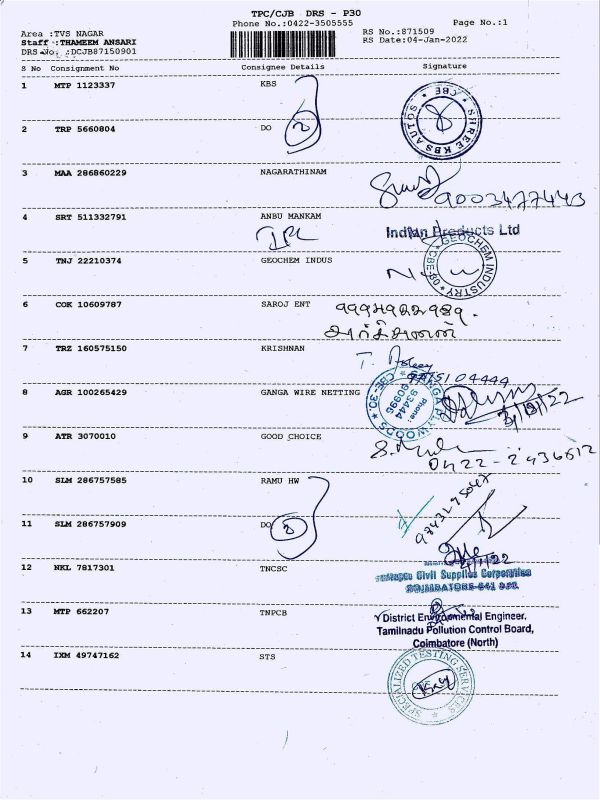 TPC/CJB DRS - P30
Phone No.:0422-3505555
Page No.:1
Area :TVS NAGAR
Staff :THAMEEM ANSARI
DRS No. :DCJB87150901
RS No.:871509
RS Date:04-Jan-2022
S No Consignment No Consignee Details Signature
1 MTP 1123337 KBS
SHREE KBS AUTOS * CBE *
2 TRP 5660804 DO 2
3 MAA 286860229 NAGARATHINAM
9003477443
4 SRT 511332791 ANBU MANKAM
IPL
Indian Products Ltd
5 TNJ 22210374 GEOCHEM INDUS
GEOCHEM INDUSTRY
6 COK 10609787 SAROJ ENT
7 TRZ 160575150 KRISHNAN
T.
8 AGR 100265429 GANGA WIRE NETTING
CBE-30.
Phone:
93444
90996
9 ATR 3070010 GOOD CHOICE
0422-2436512
10 SLM 286757585 RAMU HW
11 SLM 286757909 DO 2
12 NKL 7817301 TNCSC
Civil Supplies Corporation
13 MTP 662207 TNPCB
District Environmental Engineer,
Tamilnadu Pollution Control Board,
Coimbatore (North)
14 IXM 49747162 STS
SPECIALIZED TESTING SERVICES